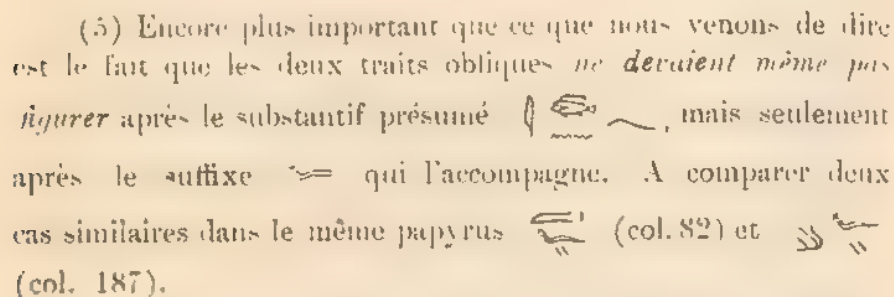 (5) Encore plus important que ce que nous venons de dire
est le fait que les deux traits obliques ne devaient même pas
figurer après le substantif présumé , mais seulement
après le suffixe qui l'accompagne. A comparer deux
cas similaires dans le même papyrus (col. 82) et
(col. 187).